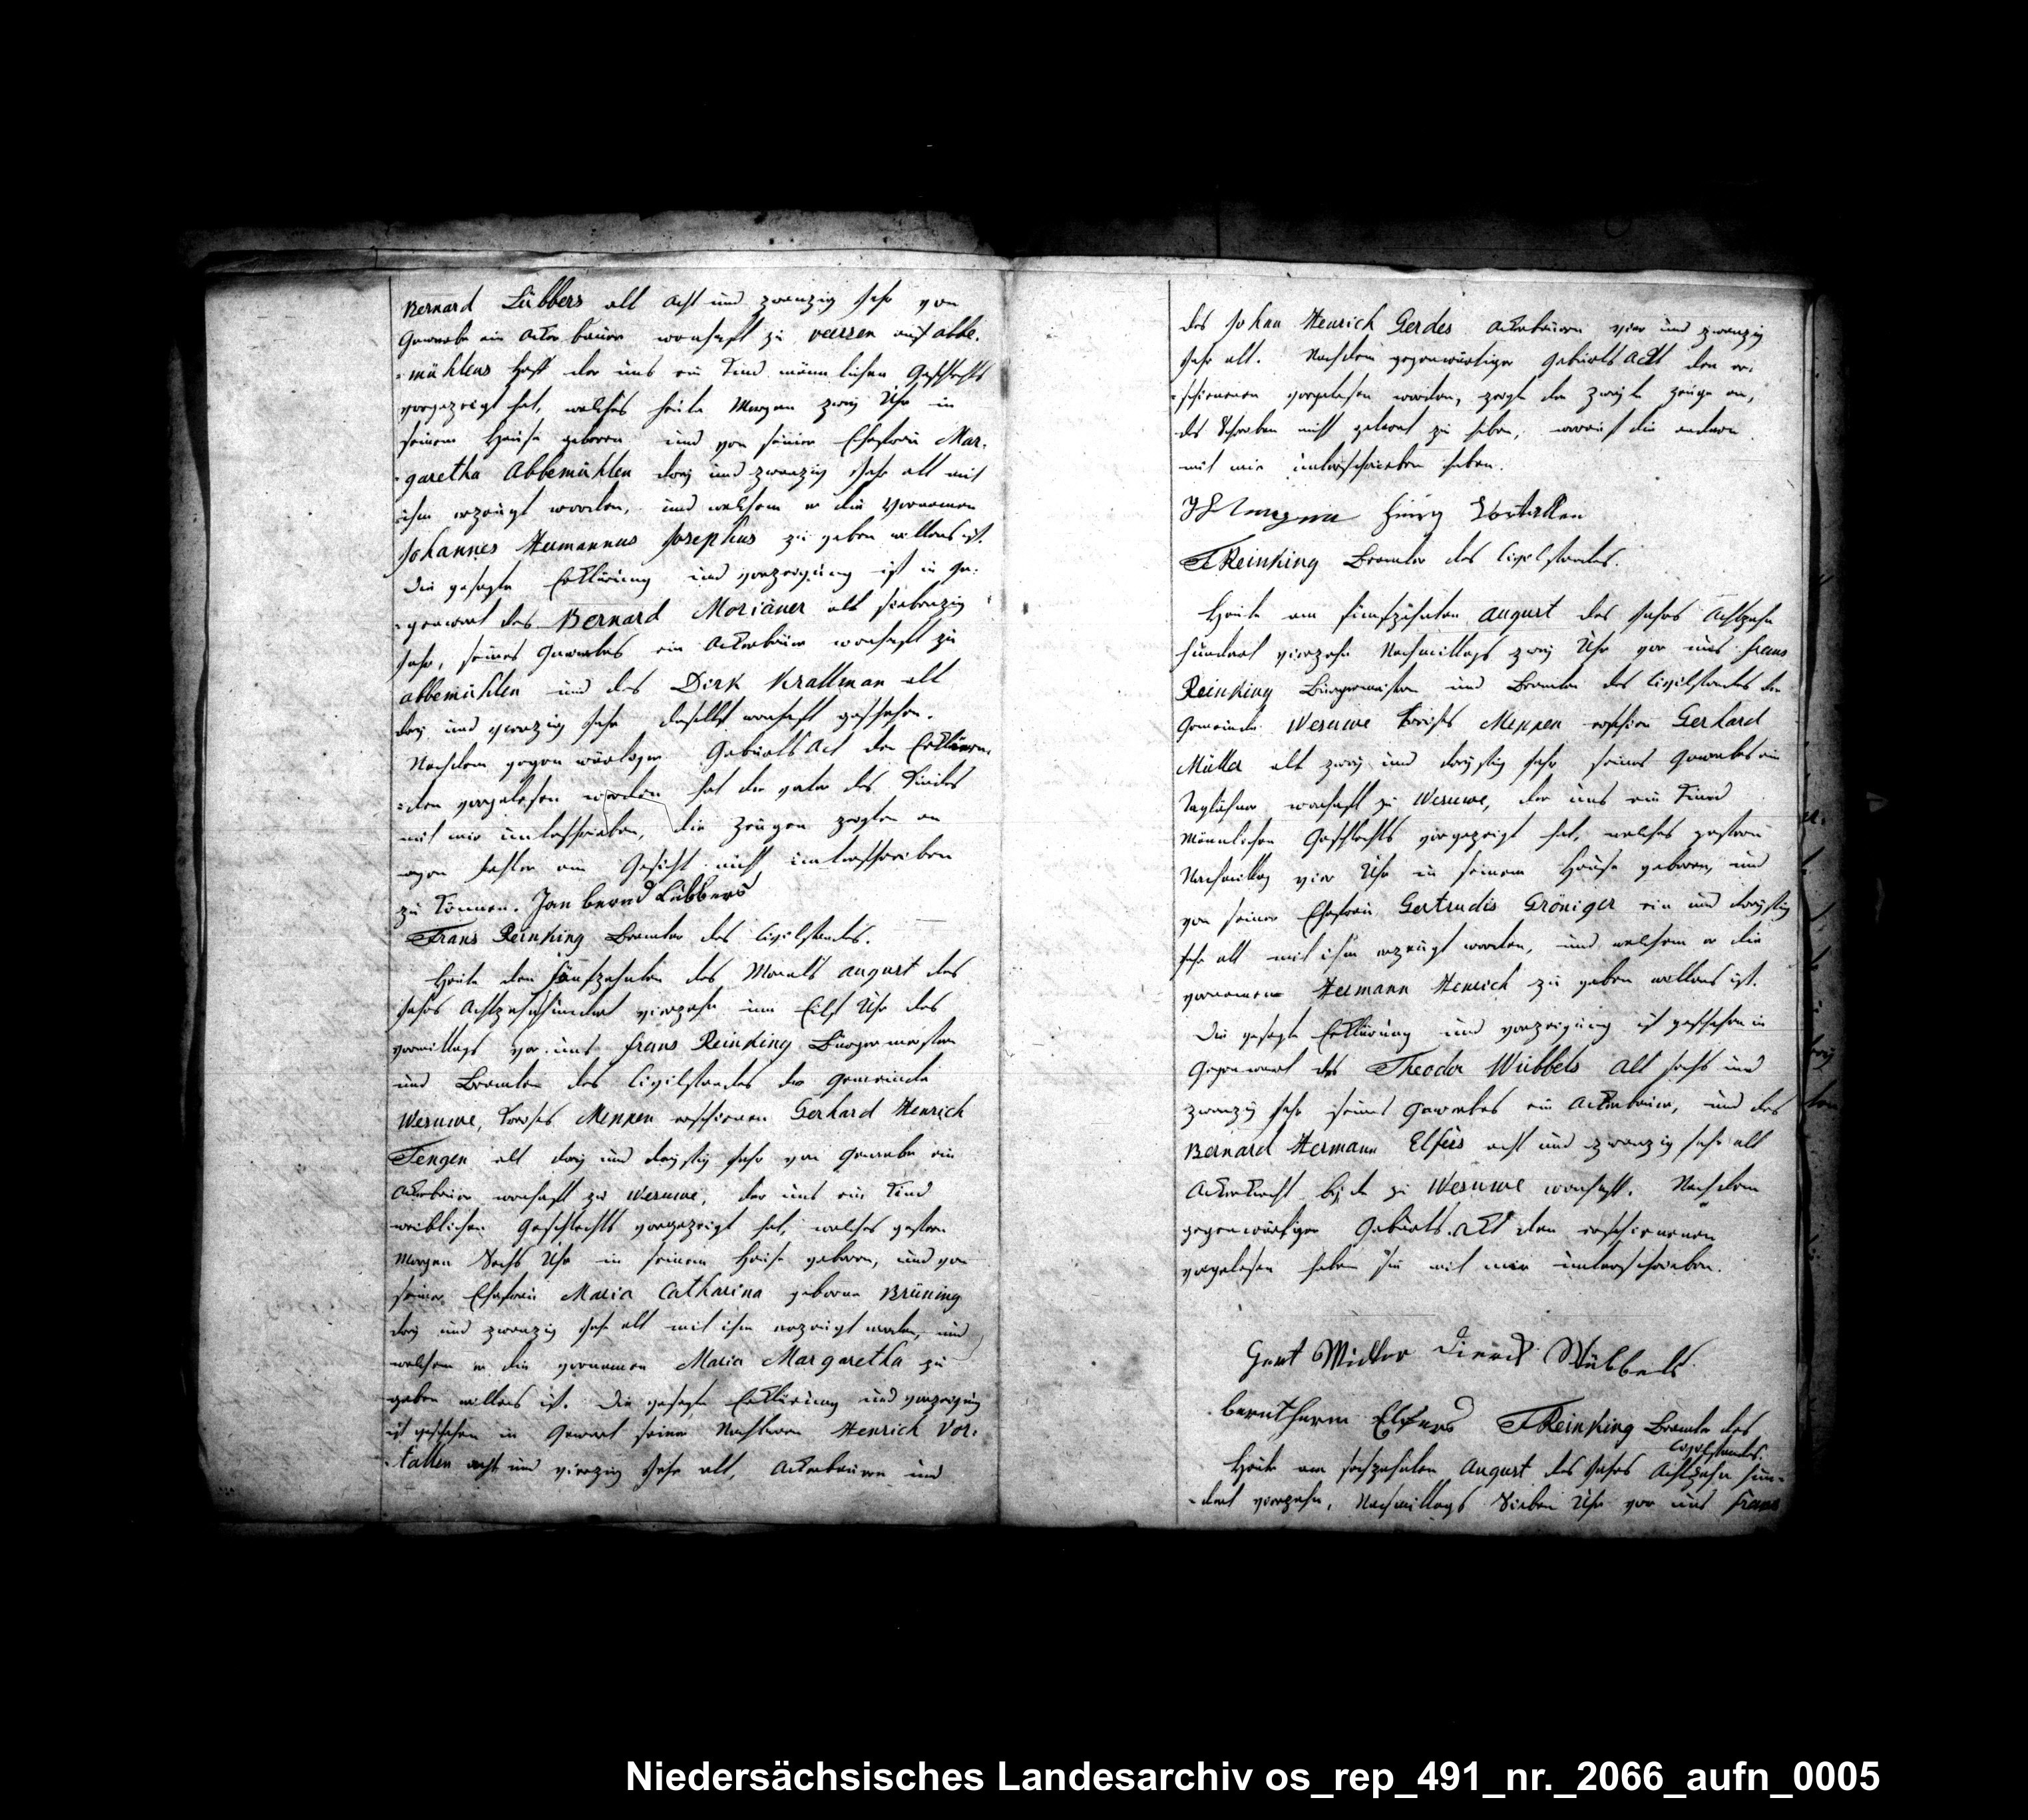 Bernard Lübbers alt acht und zwanzig Jahr von
Gewerbe ein Ackerbauer wonhaft zu veersen auf abbe-
-mühlens Hoff der uns ein Kind männlichen Geschlechts
vorgezeigt hat, welches heute Morgen zwey Uhr in
seinem Hause geboren und von seiner Ehefrau Mar-
-garetha Abbemühlen drey und zwanzig Jahr alt mit
ihm erzeugt worden, und welchem er die Vornamen
Johannes Hermannus Josephus zu geben willens ist.
Die gesagte Erklärung und vorzeigung ist in Ge-
-genwart des Bernard Moriäner alt siebenzig
Jahr, seines Gewerbes ein Ackerbauer wonhaft zu
abbemühlen und des Dirk Krallman alt
drey und vierzig Jahr daselbst wonhaft geschehen.
Nachdem gegenwärtiger Geburts Act den Erklären-
-den vorgelesen worden hat der vater des Kindes
mit mir unterschrieben, die Zeugen zeigten an
wegen fehler am Gesicht nicht unterschreiben
zu können. Jan bernd Lübbers
Frans Reinking Beamter des Civilstandes.
Heute den fünfzehnten des Monats august des
Jahrs Achtzehnhundert vierzehn um Eilf Uhr des
vormittags vor uns frans Reinking Bürgermeister
und Beamten des Civilstandes der Gemeinde
Wesuwe, Kreises Meppen erschienen Gerhard Henrich
Tengen alt drey und dreyssig Jahr von Gewerbe ein
Ackerbauer wonhaft zu Wesuwe, der uns ein Kind
weiblichen Geschlechts vorgezeigt hat, welches gestern
Morgen Sechs Uhr in seinem Hause geboren, und von
seiner Ehefrau Maria Catharina geborne Brüning
drey und zwanzig Jahr alt mit ihm erzeugt worden, und
welchem er die vornamen Maria Margaretha zu
geben willens ist. Die gesagte Erklärung und vorzeigung
ist geschehen in Gegenwart seiner Nachbaren Henrich Vor-
-tallen acht und vierzig Jahr alt, Ackerbauer und
des Johan Henrich Gerdes Ackerbauern vier und zwanzig
Jahr alt. Nachdem gegenwärtiger Geburts Act den er-
-schienenen vorgelesen worden, zeigte der Zweyte Zeuge an,
das Schreiben nicht gelernt zu haben, worauf die andern
mit mir unterschrieben haben.
Hinrg Vortallen
F Reinking Beamter des Civilstandes.
Heute am fünfzehnten august des Jahrs Achtzehn
hundert vierzehn Nachmittags zwey Uhr vor uns frans
Reinking Bürgermeister und Beamten des Civilstandes der
Gemeinde Wesuwe Kreises Meppen erschien Gerhard
Müller alt zwey und dreyssig Jahr seines Gewerbes ein
Taglöhner wonhaft zu Wesuwe, der uns ein Kind
Männlichen Geschlechts vorgezeigt hat, welches gestern
Nachmittag vier Uhr in seinem Hause geboren, und
von seiner Ehefrau Gertrudis Gröniger ein und dreyssig
Jahr alt mit ihm erzeugt worden, und welchem er die
vornamen Hermann Henrich zu geben willens ist.
Die gesagte Erklärung und vorzeigung ist geschehen in
Gegenwart des Theodor Wübbels alt sechs und
zwanzig Jahr seines Gewerbes ein Ackerbauer, und des
Bernard Hermann Elfers acht und zwanzig Jahr alt
Ackerknecht beyde zu Wesuwe wonhaft. Nachdem
gegenwärtiger Geburts Act den erschienenen
vorgelesen haben sie mit mir unterschrieben.
Gert Müller Dierck Wübbels
bernt herm Elfers F Reinking Beamter des
Civilstandes.
Heute am sechzehnten August des Jahrs Achtzehn hun-
-dert vierzehn, Nachmittags Sieben Uhr vor uns frans
Niedersächsisches Landesarchiv os_rep_491_nr._2066_aufn_0005